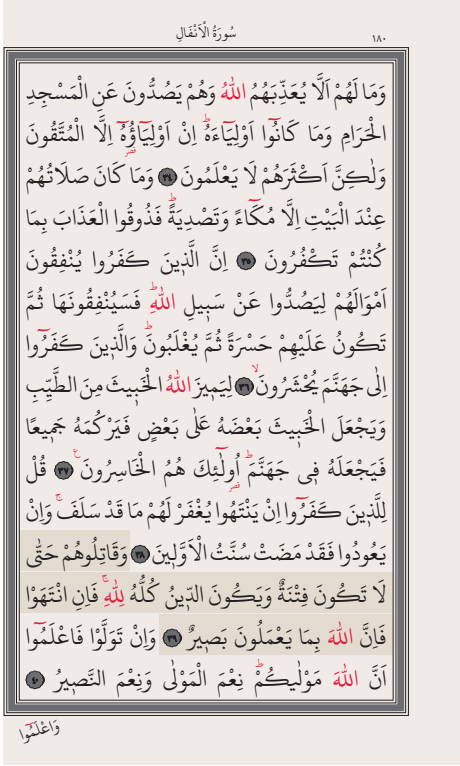 ١٨٠
سُورَةُ الْاَنْفَالِ
وَمَا لَهُمْ اَلَّا يُعَذِّبَهُمُ اللّٰهُ وَهُمْ يَصُدُّونَ عَنِ الْمَسْجِدِ
الْحَرَامِ وَمَا كَانُٓوا اَوْلِيَٓاءَهُۜ اِنْ اَوْلِيَٓاؤُ۬هُٓ اِلَّا الْمُتَّقُونَ
وَلٰكِنَّ اَكْثَرَهُمْ لَا يَعْلَمُونَ ﴿٣٤﴾ وَمَا كَانَ صَلَاتُهُمْ
عِنْدَ الْبَيْتِ اِلَّا مُكَٓاءً وَتَصْدِيَةًۜ فَذُوقُوا الْعَذَابَ بِمَا
كُنْتُمْ تَكْفُرُونَ ﴿٣٥﴾ اِنَّ الَّذ۪ينَ كَفَرُوا يُنْفِقُونَ
اَمْوَالَهُمْ لِيَصُدُّوا عَنْ سَب۪يلِ اللّٰهِۜ فَسَيُنْفِقُونَهَا ثُمَّ
تَكُونُ عَلَيْهِمْ حَسْرَةً ثُمَّ يُغْلَبُونَۜ وَالَّذ۪ينَ كَفَرُٓوا
اِلٰى جَهَنَّمَ يُحْشَرُونَۙ ﴿٣٦﴾ لِيَم۪يزَ اللّٰهُ الْخَب۪يثَ مِنَ الطَّيِّبِ
وَيَجْعَلَ الْخَب۪يثَ بَعْضَهُ عَلٰى بَعْضٍ فَيَرْكُمَهُ جَم۪يعًا
فَيَجْعَلَهُ ف۪ي جَهَنَّمَۜ اُو۬لٰٓئِكَ هُمُ الْخَاسِرُونَ۟ ﴿٣٧﴾ قُلْ
لِلَّذ۪ينَ كَفَرُٓوا اِنْ يَنْتَهُوا يُغْفَرْ لَهُمْ مَا قَدْ سَلَفَۚ وَاِنْ
يَعُودُوا فَقَدْ مَضَتْ سُنَّتُ الْاَوَّل۪ينَ ﴿٣٨﴾ وَقَاتِلُوهُمْ حَتّٰى
لَا تَكُونَ فِتْنَةٌ وَيَكُونَ الدّ۪ينُ كُلُّهُ لِلّٰهِۚ فَاِنِ انْتَهَوْا
فَاِنَّ اللّٰهَ بِمَا يَعْمَلُونَ بَص۪يرٌ ﴿٣٩﴾ وَاِنْ تَوَلَّوْا فَاعْلَمُٓوا
اَنَّ اللّٰهَ مَوْلٰيكُمْۜ نِعْمَ الْمَوْلٰى وَنِعْمَ النَّص۪يرُ ﴿٤٠﴾
وَاعْلَمُٓوا